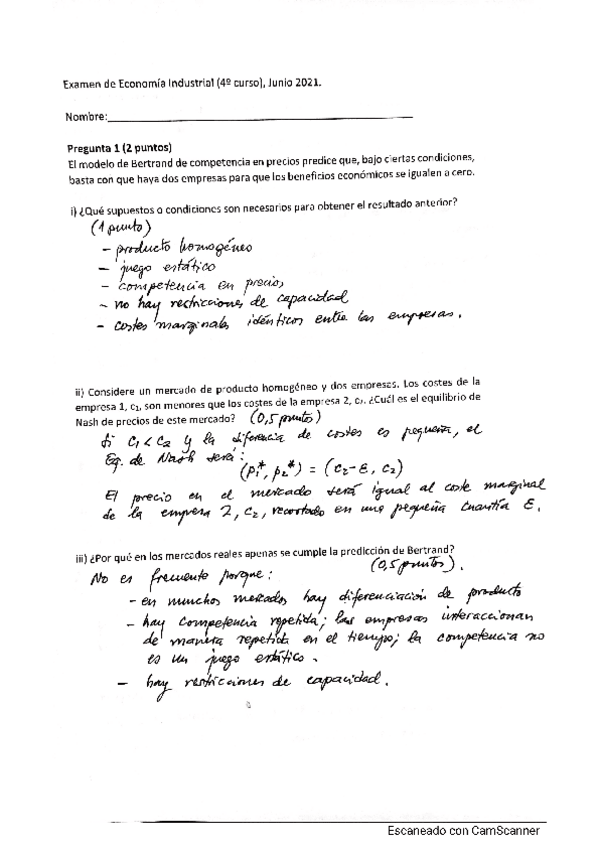 Examen de Economía Industrial (4º curso), Junio 2021.
Nombre:
Pregunta 1 (2 puntos)
El modelo de Bertrand de competencia en precios predice que, bajo ciertas condiciones,
basta con que haya dos empresas para que los beneficios económicos se igualen a cero.
i) ¿Qué supuestos o condiciones son necesarios para obtener el resultado anterior?
(1 punto)
- producto homogéneo
- juego estático
- competencia en precios
- no hay restricciones de capacidad
- costes marginales idénticos entre las empresas.
ii) Considere un mercado de producto homogéneo y dos empresas. Los costes de la
empresa 1, c₁, son menores que los costes de la empresa 2, c₂. ¿Cuál es el equilibrio de
Nash de precios de este mercado? (0,5 puntos)
Si c₁ < c₂ y la diferencia de costes es pequeña, el
Eq. de Nash será:
(p₁*, p₂*) = (c₂-ε, c₂)
El precio en el mercado será igual al coste marginal
de la empresa 2, c₂, recortado en una pequeña cuantía ε.
iii) ¿Por qué en los mercados reales apenas se cumple la predicción de Bertrand?
(0,5 puntos).
No es frecuente porque:
- en munchos mercados hay diferenciación de producto
- hay competencia repetida; las empresas interaccionan
de manera repetida en el tiempo; la competencia no
es un juego estático.
- hay restricciones de capacidad.
Escaneado con CamScanner